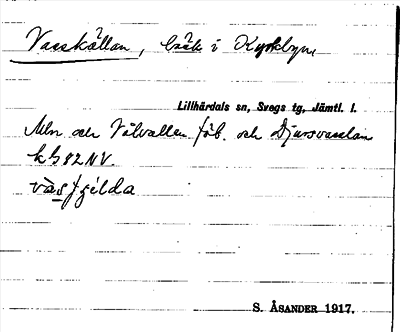 Vasskällan, bäck i Kyrkbyn,
Lillhärdals sn, Svegs tg, Jämtl. l.
Mln och Vålvallen fäb. och Djursvasslan
kb 82 NV.
S. ÅSANDER 1917.